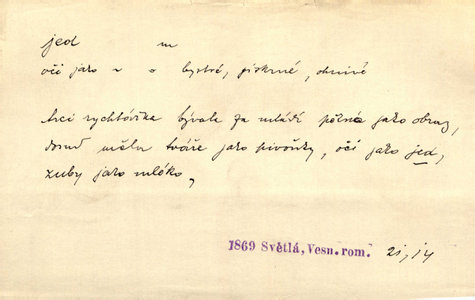 jed m
oči jako ~ o bystré, pěkné, ohnivé
Arci rychtářka bývala za mládí pěkná jako obraz,
dosud měla tváře jako pivoňky, oči jako jed,
zuby jako mléko,
1869 Světlá, Vesn. rom. 21, 14